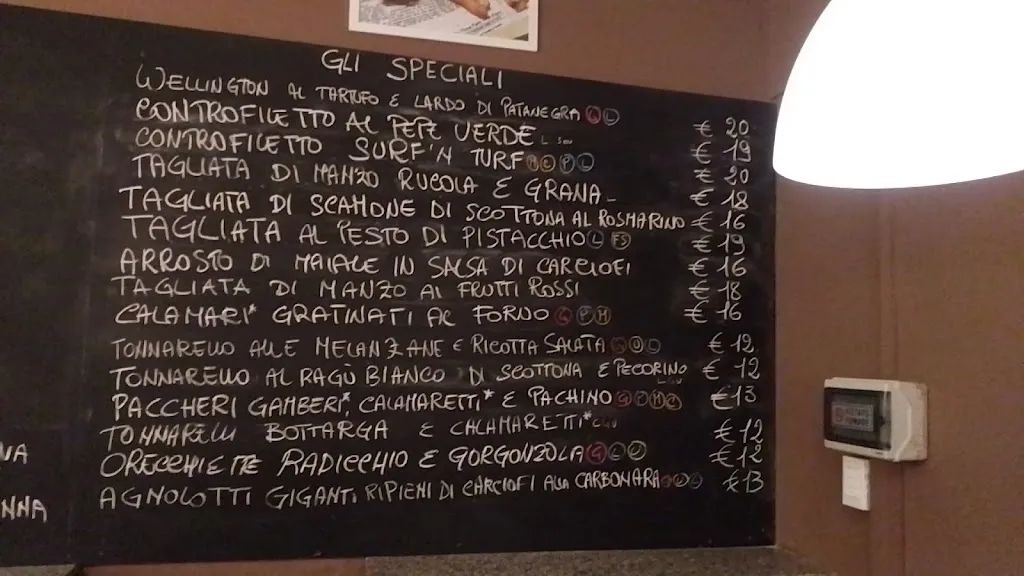 GLI SPECIALI
WELLINGTON AL TARTUFO E LARDO DI PATANEGRA G L € 20
CONTROFILETTO AL PEPE VERDE L € 19
CONTROFILETTO SURF'N TURF € 20
TAGLIATA DI MANZO RUCOLA E GRANA € 18
TAGLIATA DI SCAMONE DI SCOTTONA AL ROSMARINO € 16
TAGLIATA AL PESTO DI PISTACCHIO L FS € 19
ARROSTO DI MAIALE IN SALSA DI CARCIOFI € 16
TAGLIATA DI MANZO AI FRUTTI ROSSI € 18
CALAMARI* GRATINATI AL FORNO G P M € 16
TONNARELLO ALLE MELANZANE E RICOTTA SALATA G U L € 12
TONNARELLO AL RAGÙ BIANCO DI SCOTTONA E PECORINO € 12
PACCHERI GAMBERI*, CALAMARETTI* E PACHINO € 13
TONNARELLI BOTTARGA E CALAMARETTI* € 12
ORECCHIETTE RADICCHIO E GORGONZOLA € 12
AGNOLOTTI GIGANTI RIPIENI DI CARCIOFI ALLA CARBONARA € 13
VA
NNA